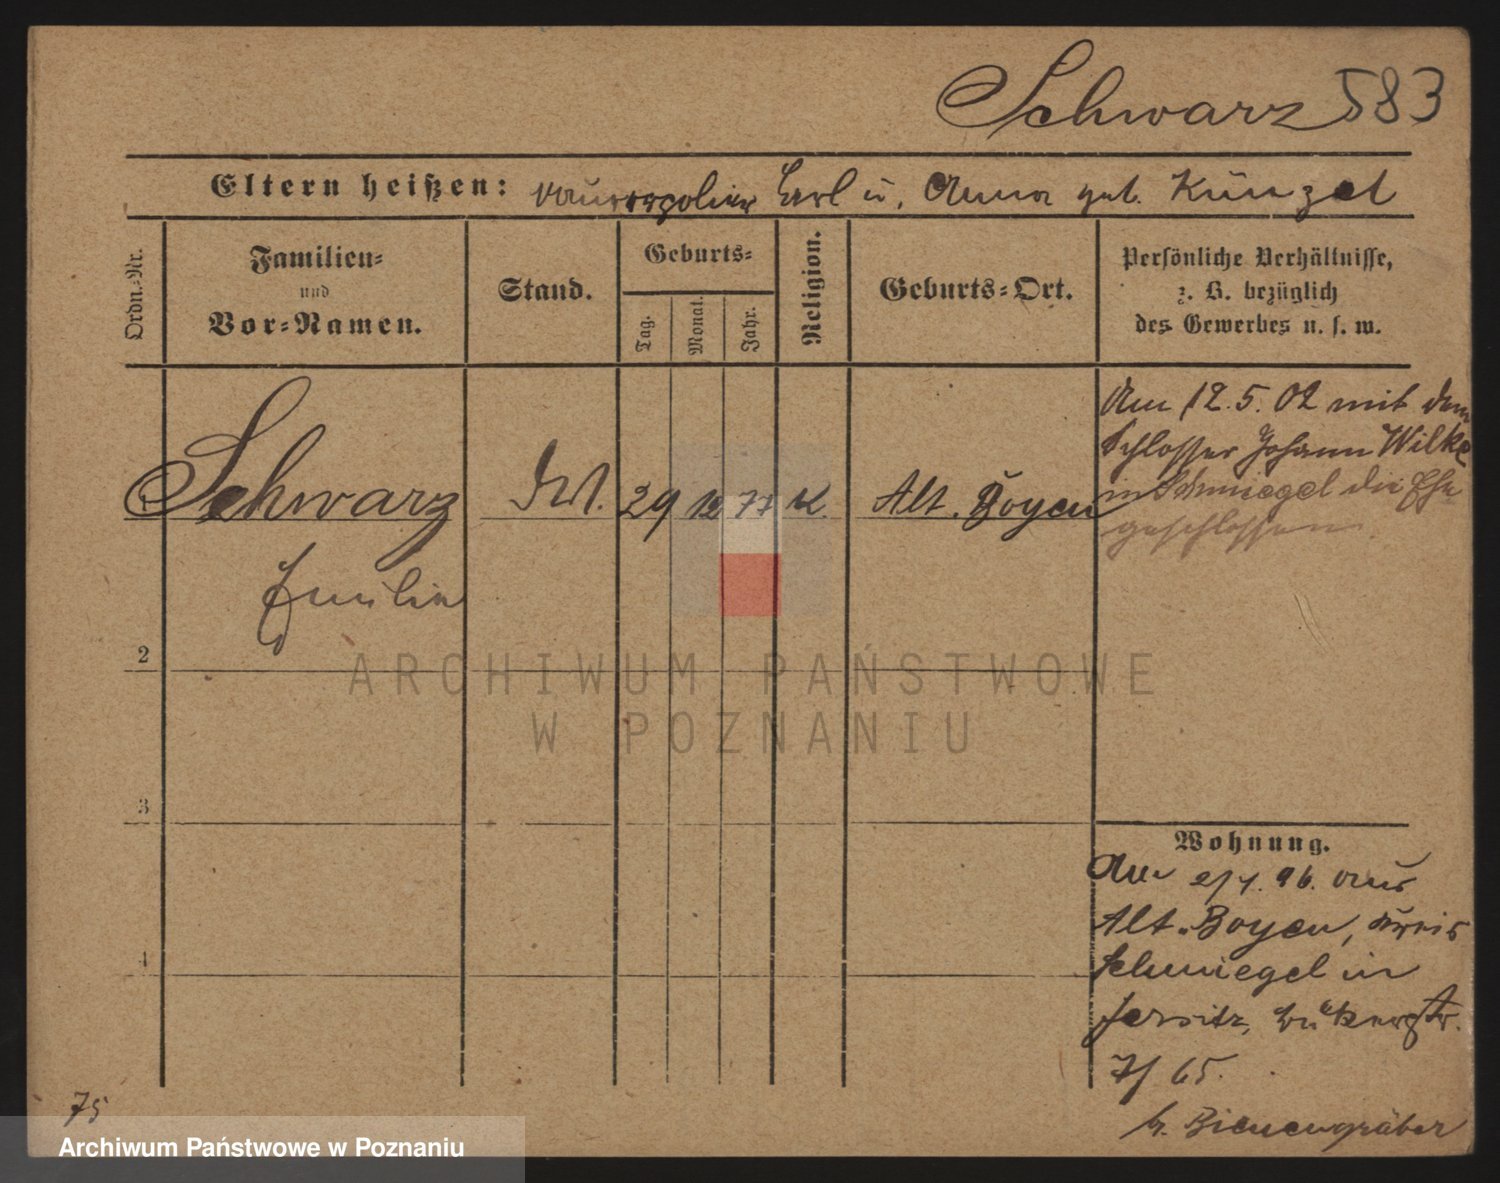 Schwarz 583
Eltern heißen: Maurerpolier Carl u. Anna geb. Künzel
Ordn.-Nr.
Familien-
und
Vor-Namen.
Stand.
Geburts-
Tag.
Monat.
Jahr.
Religion.
Geburts-Ort.
Persönliche Verhältnisse,
z. B. bezüglich
des Gewerbes u. s. w.
1
Schwarz
29 12 77 K.
Alt. Boyen
Emilie
Am 12.5.02 mit dem
Schlosser Johann Wilke
in Schmiegel die Ehe
geschlossen
2
3
4
Wohnung.
Am 2/4. 96. aus
Alt-Boyen, Kreis
Schmiegel in
Jersitz,
7/ 65.
b. Bienengräber
75
ARCHIWUM PAŃSTWOWE
W POZNANIU
Archiwum Państwowe w Poznaniu